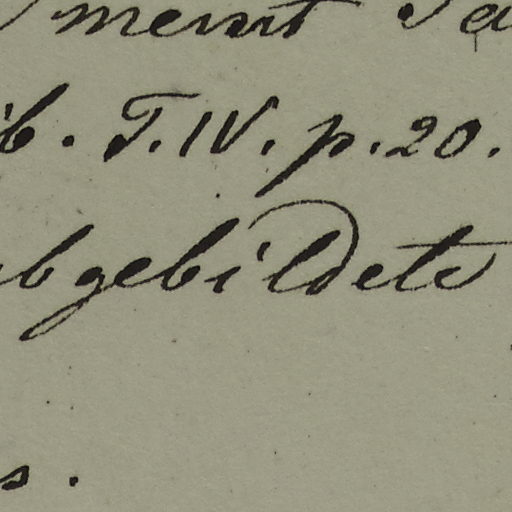 meint
b. T. IV. p. 20.
abgebildete
s.